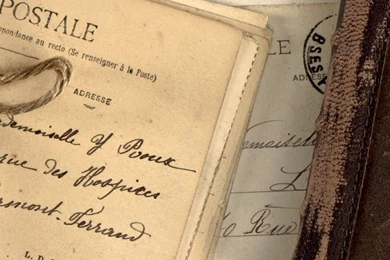 POSTALE
pondance au recto (Se renseigner à la Poste)
ADRESSE
demoiselle Y Roux
rue des Hospices
rmont-Ferrand
L. D.
LE
ADRE
emoiselle
L
Rue